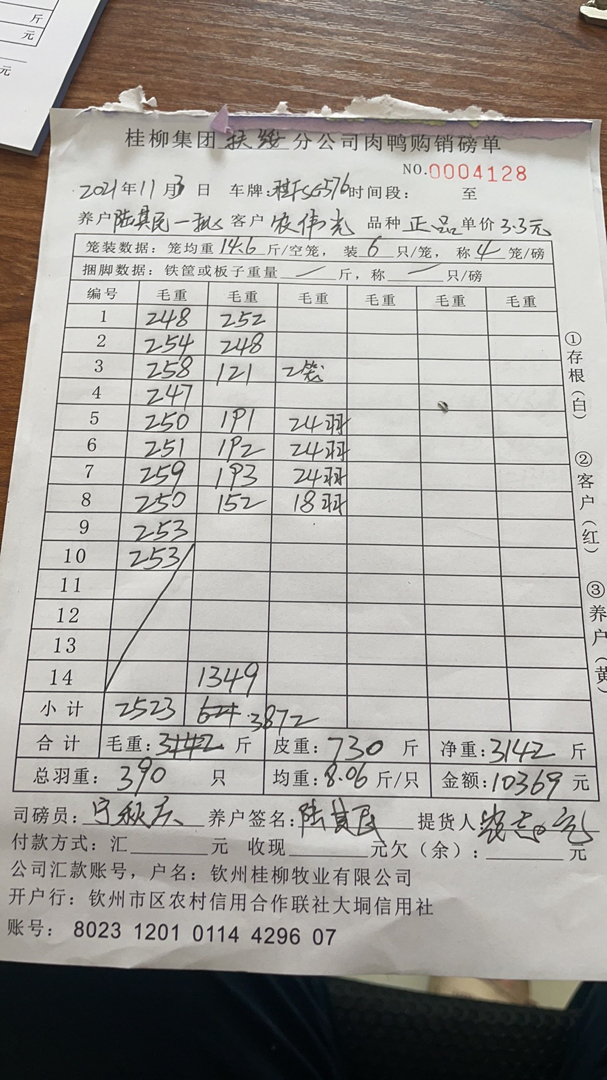 斤
元
元
桂柳集团扶绥分公司肉鸭购销磅单
NO.0004128
2021年11月3日 车牌: 时间段: 至
养户陆其民一批 客户农伟光 品种正品单价3.3元
笼装数据：笼均重14.6斤/空笼，装6只/笼，称4笼/磅
捆脚数据：铁筐或板子重量 / 斤，称 / 只/磅
编号 毛重 毛重 毛重 毛重 毛重 毛重
1 248 252
2 254 248
3 258 121 2笼
4 247
5 250 191 24羽
6 251 192 24羽
7 259 193 24羽
8 250 152 18羽
9 253
10 253
11
12
13
14 1349
小计 2523 3872
合计 毛重:3142斤 皮重:730斤 净重:3142斤
总羽重:390只 均重:8.06斤/只 金额:10369元
司磅员:宁秋庆 养户签名:陆其民 提货人
付款方式:汇 元 收现 元欠（余）: 元
公司汇款账号，户名：钦州桂柳牧业有限公司
开户行：钦州市区农村信用合作联社大垌信用社
账号：8023 1201 0114 4296 07
①存根（白）
②客户（红）
③养户（黄